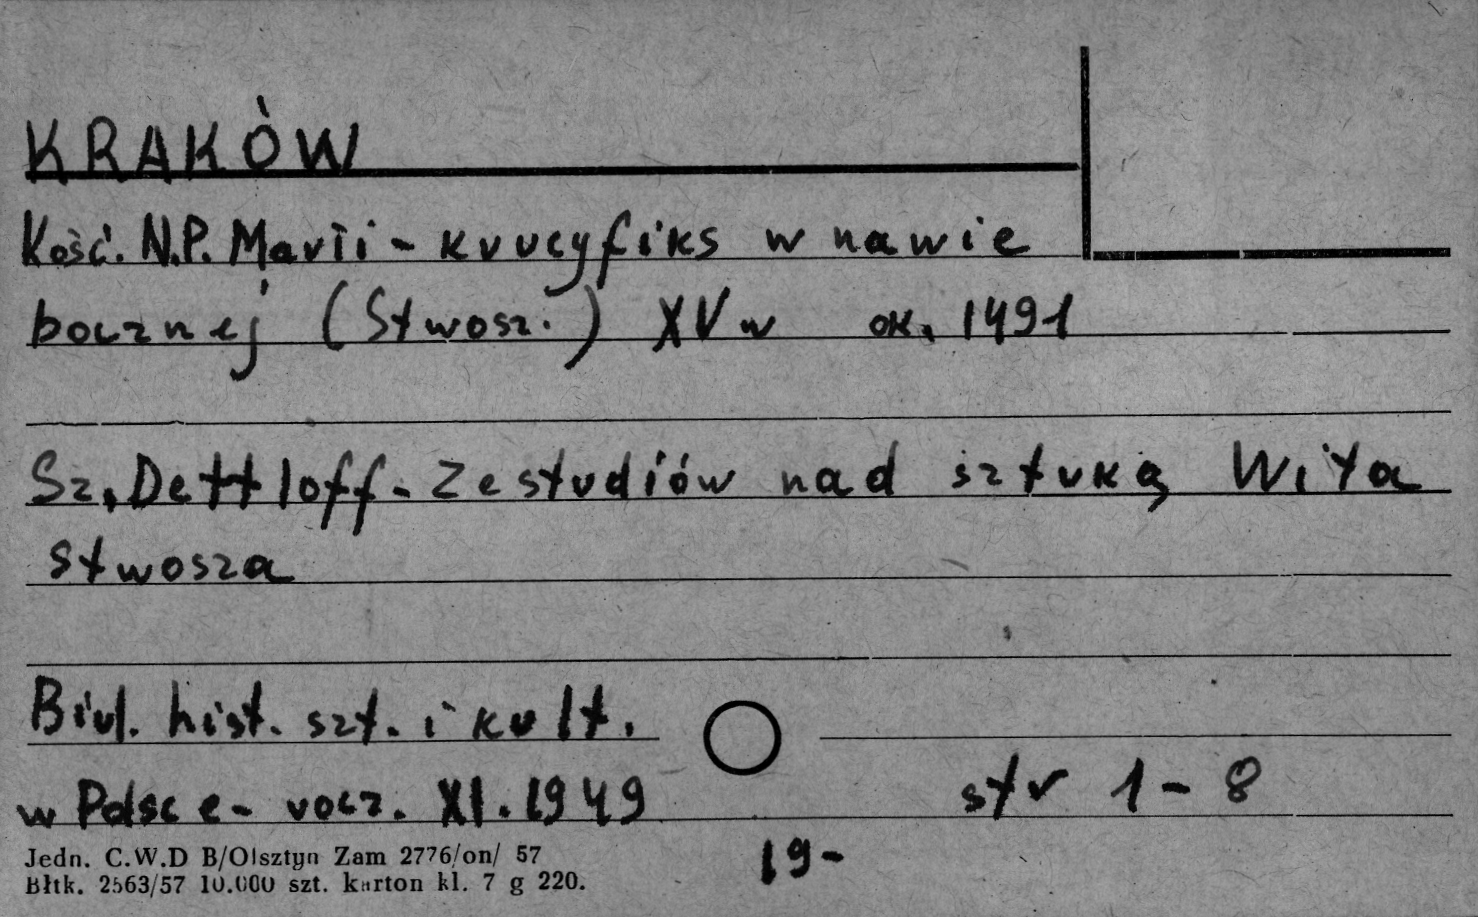 KRAKÓW
Kość. N.P. Marii - krucyfiks w nawie
bocznej (Stwosz.) XV w ok. 1491
Sz. Dettloff - Ze studiów nad sztuką Wita
Stwosza
Biul. hist. szt. i kult.
w Polsce - rocz. XI. 1949 str 1-8
19-
Jedn. C.W.D B/Olsztyn Zam 2776/on/ 57
Błtk. 2563/57 10.000 szt. karton kl. 7 g 220.